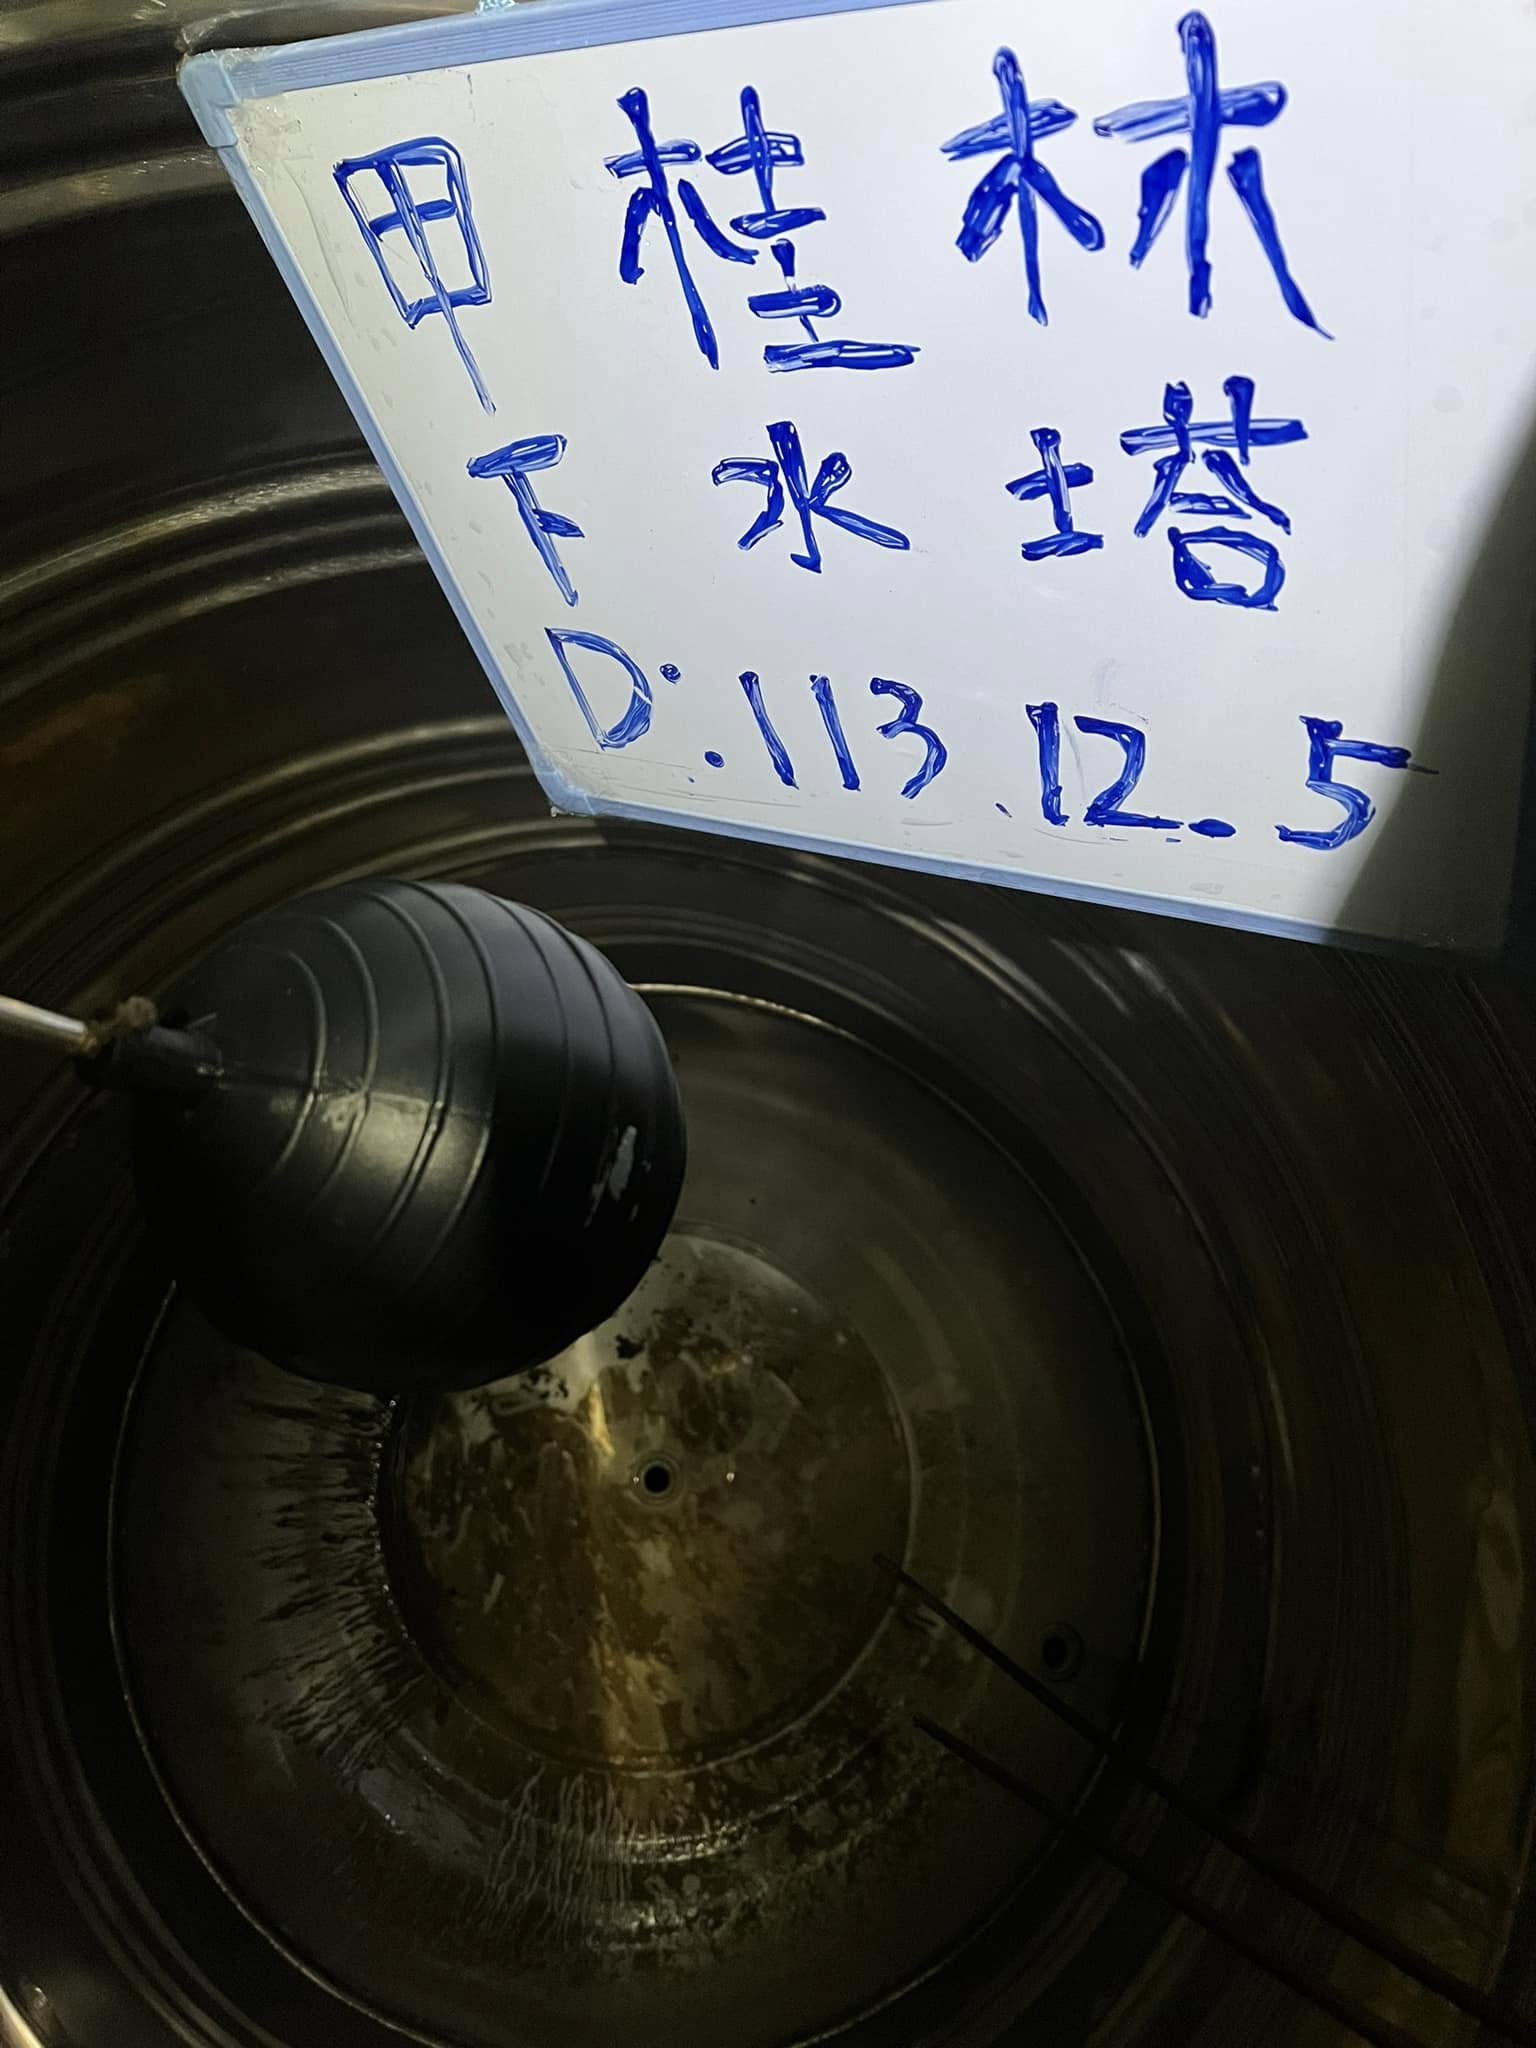 甲桂林
下水塔
D:113.12.5